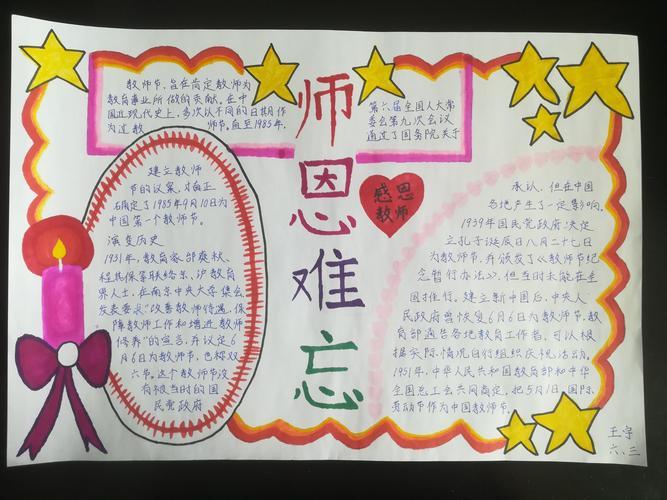 教师节,旨在肯定教师为
教育事业所做的贡献。在中
国近现代史上,多次以不同的日期作
为过教师节。直至1985年,
第六届全国人大常
委会第九次会议
通过了国务院关于
建立教师
节的议案,才真正
确定了1985年9月10日为
中国第一个教师节。
演变历史
1931年,教育家邰爽秋、
程其保等联络京、沪教育
界人士,在南京中央大学集会,
发表要求"改善教师待遇,保
障教师工作和增进教师
修养"的宣言,并议定6
月6日为教师节,也称双
六节。这个教师节没
有被当时的国
民党政府
师恩难忘
感恩
教师
承认,但在中国
各地产生了一定影响。
1939年国民党政府决定
立孔子诞辰日八月二十七日
为教师节,并颁发了《教师节纪
念暂行办法》,但当时未能在全
国推行。建立新中国后,中央人
民政府曾恢复6月6日为教师节,教
育部通告各地教育工作者,可以根
据实际情况自行组织庆祝活动。
1951年,中华人民共和国教育部和中华
全国总工会共同商定,把5月1日国际
劳动节作为中国教师节。
王宇
六、三